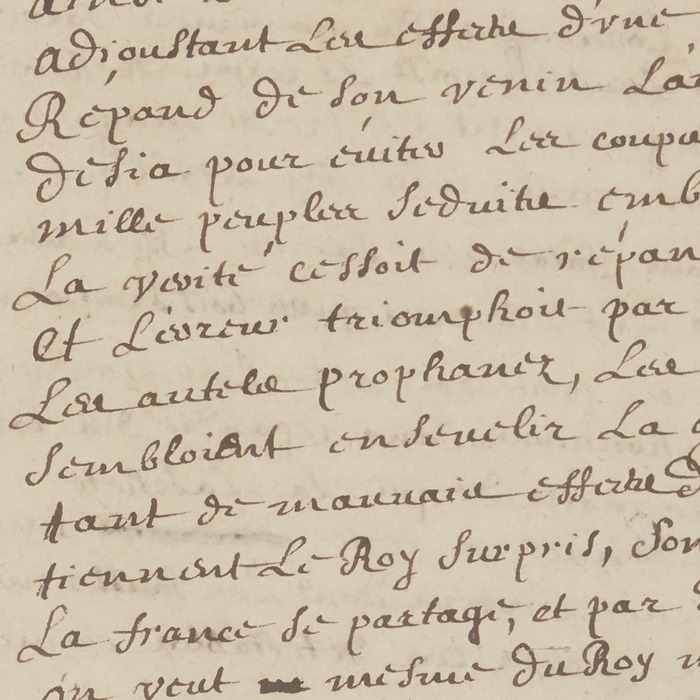 adjoustant Les effects d'vne
Répand de son venin La
desia pour éuiter Les coups
mille peuples seduits emb
La verité cessoit de répan
Et L'erreur triomphoit par
Les autels prophanez, Les
sembloient enseuelir La
tant de mauuais effects
tiennent Le Roy surpris, son
La france se partage, et par
on veut mesme du Roy